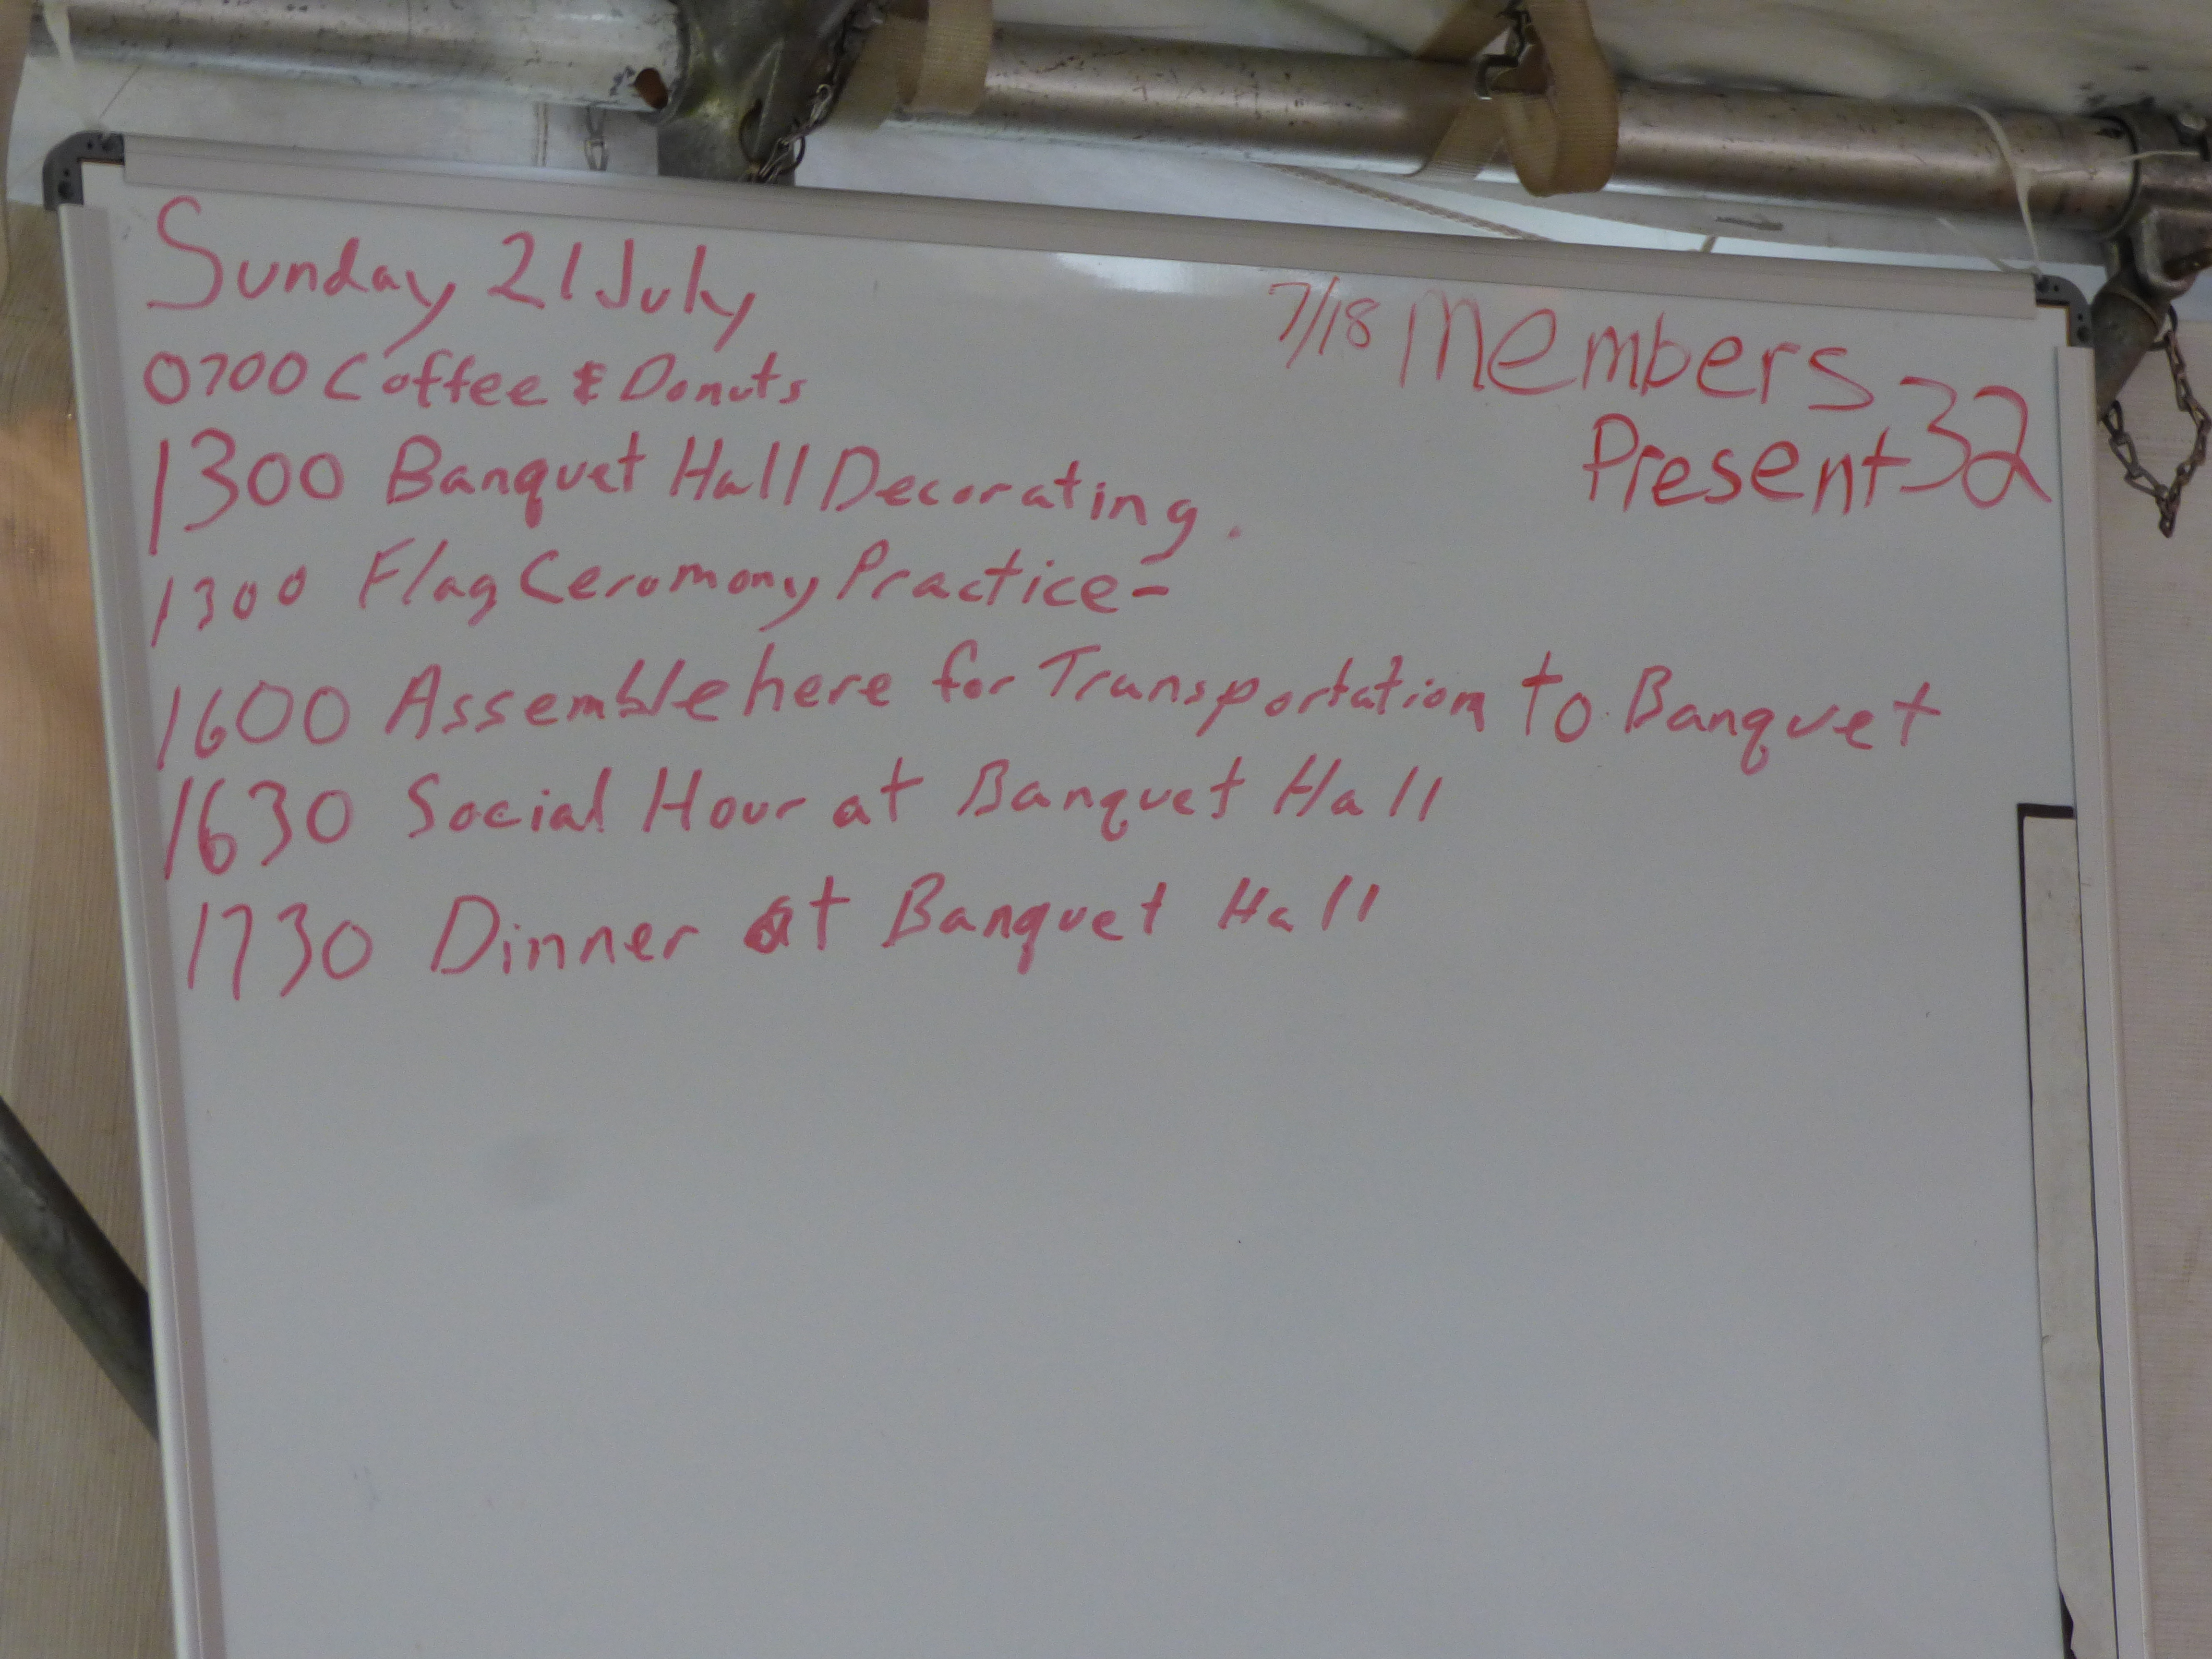 Sunday 21 July
0700 Coffee & Donuts
1300 Banquet Hall Decorating.
1300 Flag Ceromony Practice-
1600 Assemble here for Transportation to Banquet
1630 Social Hour at Banquet Hall
1730 Dinner at Banquet Hall
7/18 Members
Present 32